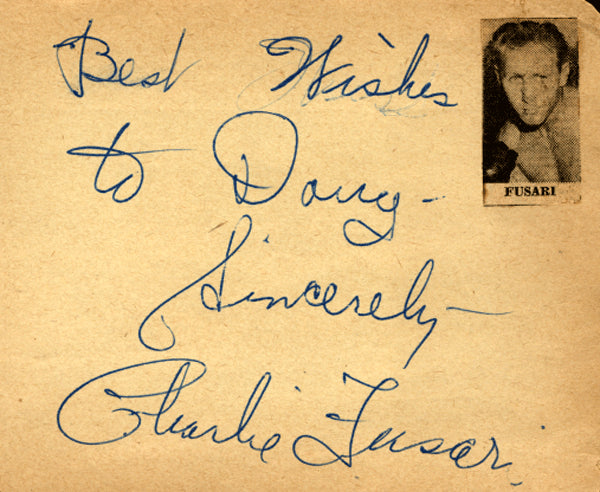 Best Wishes
to Doug-
Sincerely-
Charlie Fusari
FUSARI